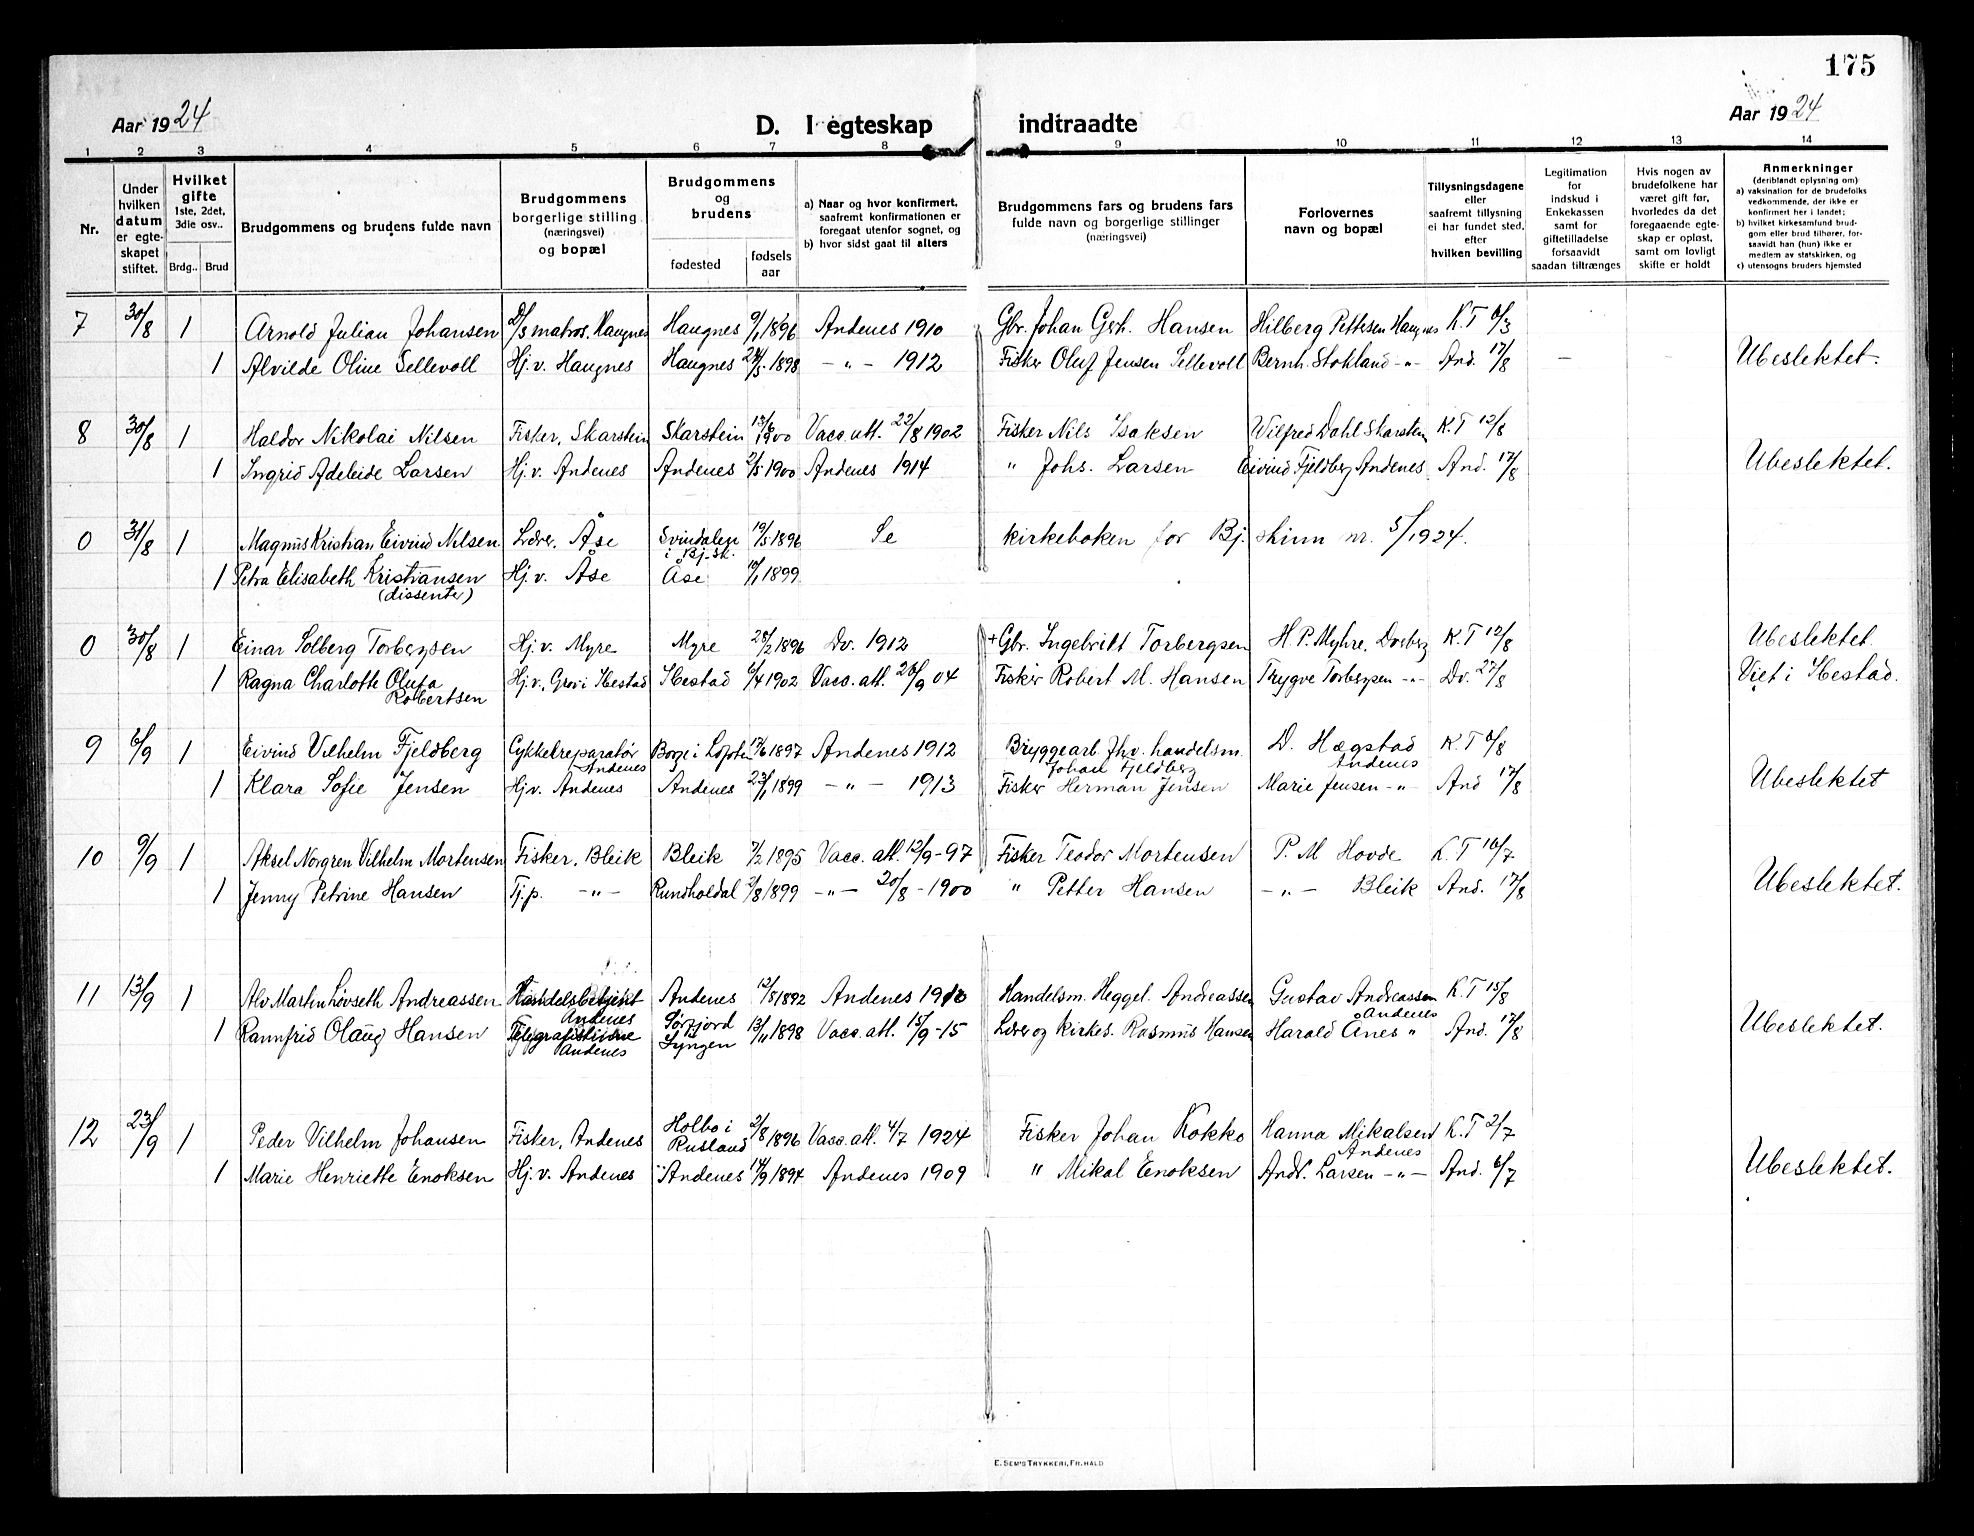 175
Aar 1924 D. I egteskap indtraadte Aar 1924
1 2 3 4 5 6 7 8 9 10 11 12 13 14
Nr.
Under hvilken datum er egteskapet stiftet.
Hvilket gifte 1ste, 2det, 3die osv..
Brdg.. Brud
Brudgommens og brudens fulde navn
Brudgommens borgerlige stilling (næringsvei) og bopæl
Brudgommens og brudens
fødested fødsels aar
a) Naar og hvor konfirmert, saafremt konfirmationen er foregaat utenfor sognet, og
b) hvor sidst gaat til alters
Brudgommens fars og brudens fars fulde navn og borgerlige stillinger (næringsvei)
Forlovernes navn og bopæl
Tillysningsdagene eller saafremt tillysning ei har fundet sted, efter hvilken bevilling
Legitimation for indskud i Enkekassen samt for giftetilladelse forsaavidt saadan tiltrænges
Hvis nogen av brudefolkene har været gift før, hvorledes da det foregaaende egteskap er opløst, samt om lovligt skifte er holdt
Anmerkninger (deriblandt oplysning om)
a) vaksination for de brudefolks vedkommende, der ikke er konfirmert her i landet;
b) hvilket kirkesamfund brudgom eller brud tilhører, forsaavidt han (hun) ikke er medlem av statskirken, og
c) utensogns bruders hjemsted
7 30/8 1 Arnold Julian Johansen D/S matros, Haugnes Haugnes 9/1 1896 Andenes 1910 Gbr. Johan Gerh. Hansen Hilberg Pettersen Haugnes K.T
1 Alvilde Oline Sellevoll Hj.v. Haugnes Haugnes 1898 — „ — 1912 Fisker Oluf Jensen Sellevoll Bernh. Stokland -„- And. 17/8 — — Ubeslektet.
8 30/8 1 Haldor Nikolai Nilsen Fisker, Skarstein Skarstein 13/6 1900 Vacc. att. 22/8 1902 Fisker Nils Isaksen Wilfred Dahl Skarstein K.T 12/8
1 Ingrid Adeleide Larsen Hj.v. Andenes Andenes 2/5 1900 Andenes 1914 „ Johs. Larsen Eivind Fjeldberg Andenes And. 17/8 Ubeslektet.
0 31/8 1 Magnus Kristian Eivind Nilsen Lærer, Åse Svindalen i Bj.sk. 19/5 1896 Se kirkeboken for Bj. skinn nr. 5/1924.
1 Petra Elisabeth Kristiansen (dissenter) Hj.v. Åse Åse 1899
0 30/8 1 Einar Solberg Torbergsen Hj.v. Myre Myre 28/2 1896 Dv. 1912 + Gbr. Ingebrikt Torbergsen H.P. Myhre, Dverberg K.T 12/8 Ubeslektet
1 Ragna Charlotte Olufa Robertsen Hj.v., Grov i Ibestad Ibestad 6/4 1902 Vacc. att. 26/9 04 Fisker Robert M. Hansen Trygve Torbergsen -„- Dv. 27/8 Viet i Ibestad.
9 6/9 1 Eivind Vilhelm Fjeldberg Cykkelreparatør Andenes Borge i Lofoten 17/6 1897 Andenes 1912 Bryggearb. fhv. handelsm. Johan Fjeldberg D. Hægstad Andenes K.T
1 Klara Sofie Jensen Hj.v. Andenes Andenes 23/1 1899 — „ — 1913 Fisker Herman Jensen Marie Jensen -„- And 17/8 Ubeslektet
10 9/9 1 Aksel Norgren Vilhelm Mortensen Fisker, Bleik Bleik 7/2 1895 Vacc. att. 12/9-97 Fisker Teodor Mortensen P. M Hovde K.T 16/7
1 Jenny Petrine Hansen Tj.p. -„- Rundholdal 2/8 1899 -„- 20/8-1900 „ Petter Hansen -„- Bleik And. 17/8 Ubeslektet.
11 13/9 1 Alv Martin Livseth Andreassen Handelsbetjent Andenes Andenes 12/8 1892 Andenes 1910 Handelsm. Heggel. Andreassen Gustav Andreassen Andenes K.T 15/8
1 Rannfrid Olaug Hansen Telegrafistinne Andenes Sørfjord Lyngen 13/11 1898 Vacc. att. 15/9-15 Lærer og kirkes. Rasmus Hansen Harald Ånes „ And. 17/8 Ubeslektet.
12 23/9 1 Peder Vilhelm Johansen Fisker, Andenes Holbo i Rusland 2/8 1896 Vacc. att. 4/7 1924 Fisker Johan Kokko Hanna Mikalsen Andenes K.T 2/7
1 Marie Henriette Enoksen Hj.v. Andenes Andenes 14/9 1894 Andenes 1909 „ Mikal Enoksen Andr. Larsen -„- And. 6/7 Ubeslektet.
E. SEM'S TRYKKERI, FR.HALD